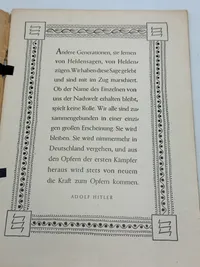 Andere Generationen, sie lernen
von Heldensagen, von Helden-
zügen. Wir haben diese Sage gelebt
und sind mit im Zug marschiert.
Ob der Name des Einzelnen von
uns der Nachwelt erhalten bleibt,
spielt keine Rolle. Wir alle sind zu-
sammengebunden in einer einzi-
gen großen Erscheinung. Sie wird
bleiben. Sie wird nimmermehr in
Deutschland vergehen, und aus
den Opfern der ersten Kämpfer
heraus wird stets von neuem
die Kraft zum Opfern kommen.
ADOLF HITLER